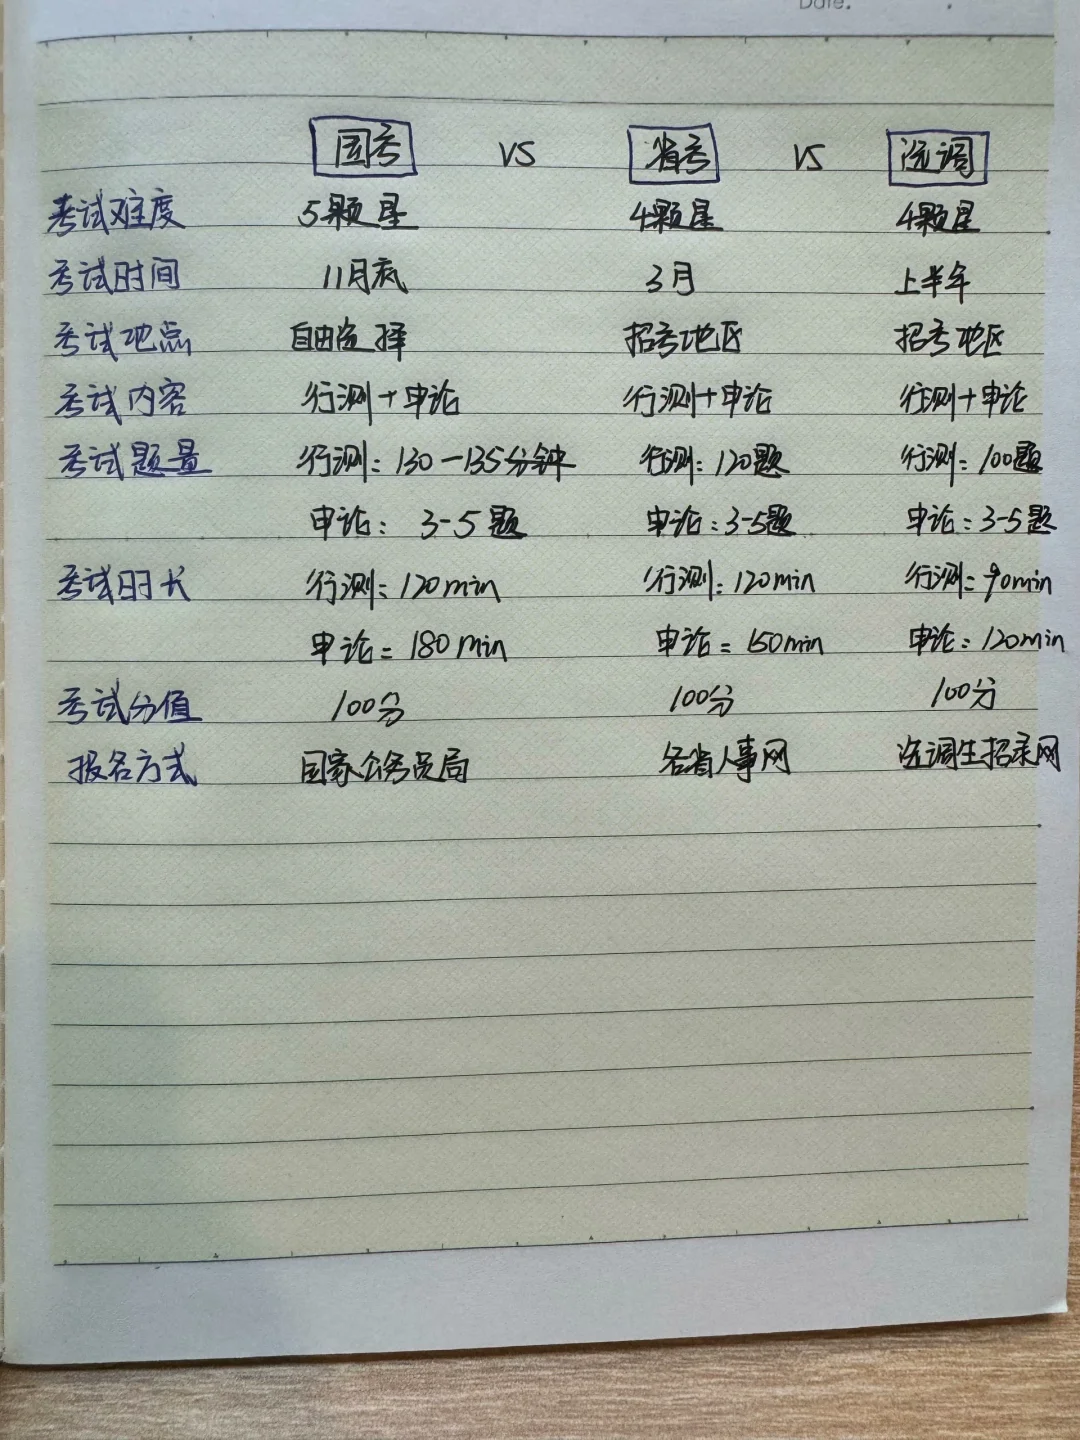 Date.
国考 VS 省考 VS 选调
考试难度 5颗星 4颗星 4颗星
考试时间 11月底 3月 上半年
考试地点 自由选择 招考地区 招考地区
考试内容 行测+申论 行测+申论 行测+申论
考试题量 行测:130-135分钟 行测:120题 行测:100题
申论: 3-5题 申论:3-5题 申论:3-5题
考试时长 行测:120min 行测:120min 行测:90min
申论:180min 申论:150min 申论:120min
考试分值 100分 100分 100分
报名方式 国家公务员局 各省人事网 选调生招录网